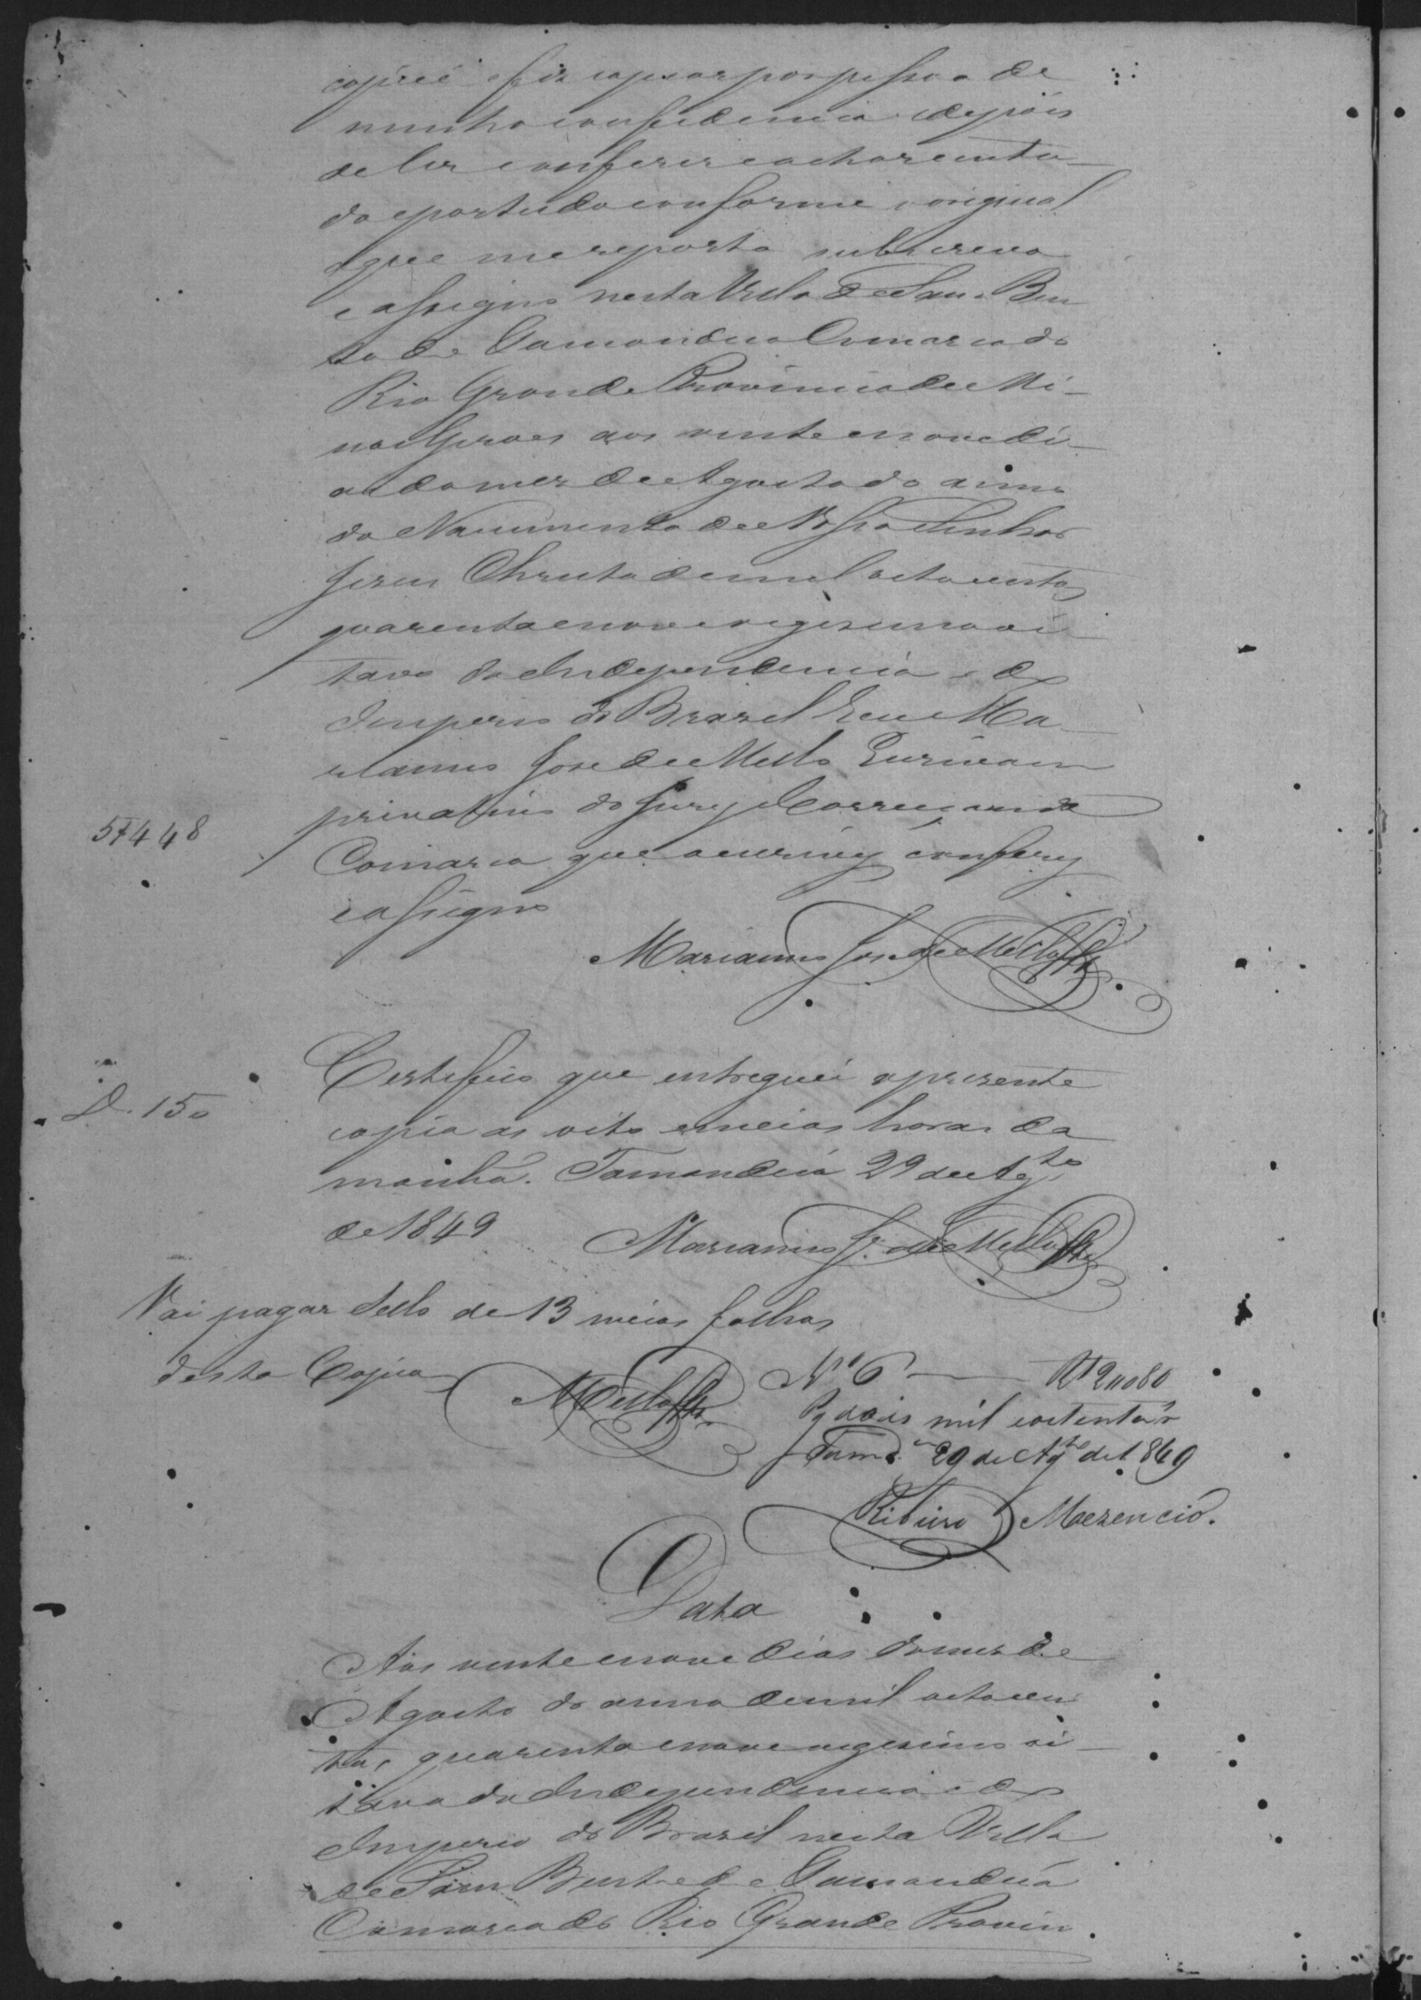 copiei e fiz copiar por pessoa de
minha confidencia depois
de ler conferir e achar em tu-
do e por tudo conforme o original
a que me reporto subscrevo
e assigno nesta Villa de Sam Ben-
to de Tamandua Comarca do
Rio Grande Provincia de Mi-
nas Geraes aos vinte e nove di-
as do mez de Agosto do anno
do Nascimento de Nosso Senhor
Jesus Christo de mil oito centos
quarenta e nove vigesimo oi-
tavo da Independencia e do
Imperio do Brazil Eu Ma-
rianno Jose de Mello Escrivam
privativo do Jury e Correiçam da
57448
Comarca que a escrevy confery
e assigno
Marianno Jose de Mello
Certifico que entreguei a prezente
D. 150
copia as oito e meias horas da
manhã. Tamanduá 29 de Agto
de 1849
Marianno J. de Mello
Vai pagar Sello de 13 meias folhas
desta Copia
Mello
No 6 Rs 2$080
Pg dois mil e oitenta rs
Tamd.a 29 de Agto de 1849
Ribeiro Mezencio.
Data
Aos vinte e nove dias do mez de
Agosto do anno de mil oito cen
tos quarenta e nove vigesimo oi-
tavo da Independencia e do
Imperio do Brazil nesta Villa
de Sam Bento de Tamanduá
Comarca do Rio Grande Provin